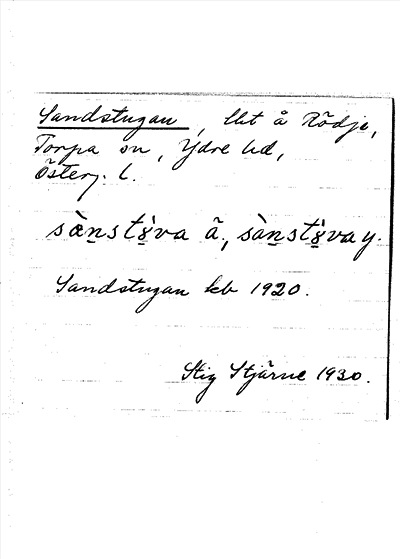 Sandstugan, lht å Rödje,
Torpa sn, Ydre hd,
Österg. l.
sæ̀n̲st ɣ̲̀va ã, sàn̲st ɣ̲̀va y.
Sandstugan kb 1920.
Stig Stjärne 1930.